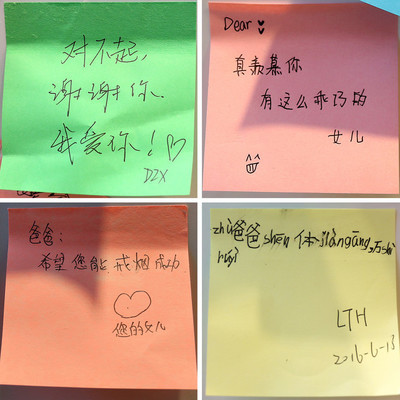 对不起,
谢谢你.
我爱你!♡
DZX
Dear
真羡慕你
有这么乖巧的
女儿
爸爸:
希望您能戒烟成功
您的女儿
zhù爸爸shēn体jiàngāng,万shì
rúyì
LTH
2016-6-13